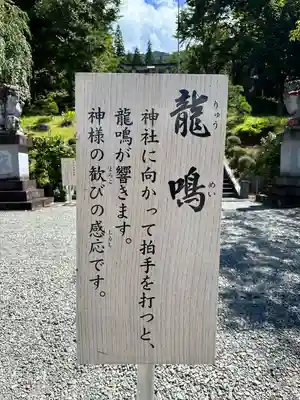 龍鳴
りゅう めい
神社に向かって拍手を打つと、
龍鳴が響きます。
神様の歓びの感応です。